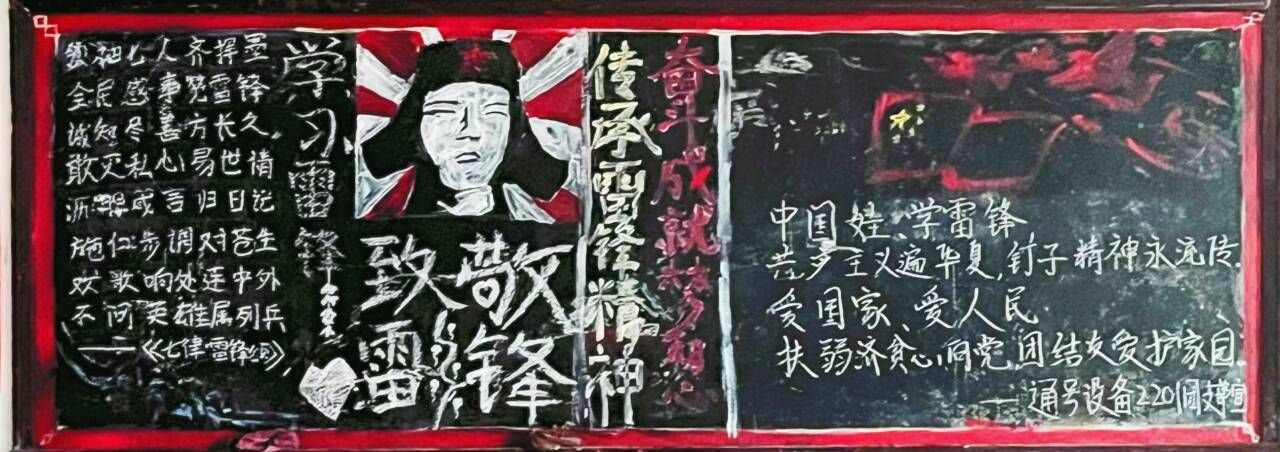 人齐挥墨
全民感事赞雪锋
诚知尽善方长久
敢灭私心易世情
言归日记
施仁步调对苍生
欢歌响处连中外
不问英雄属列兵
——《七律雷锋颂》
学习雷锋
致敬
雷锋
传承雷锋精神
奋斗成就梦想
中国娃、学雷锋
共产主义遍华夏,钉子精神永流传.
爱国家、爱人民
扶弱济贫心向党,团结友爱护家园.
——通号设备2201团支部宣